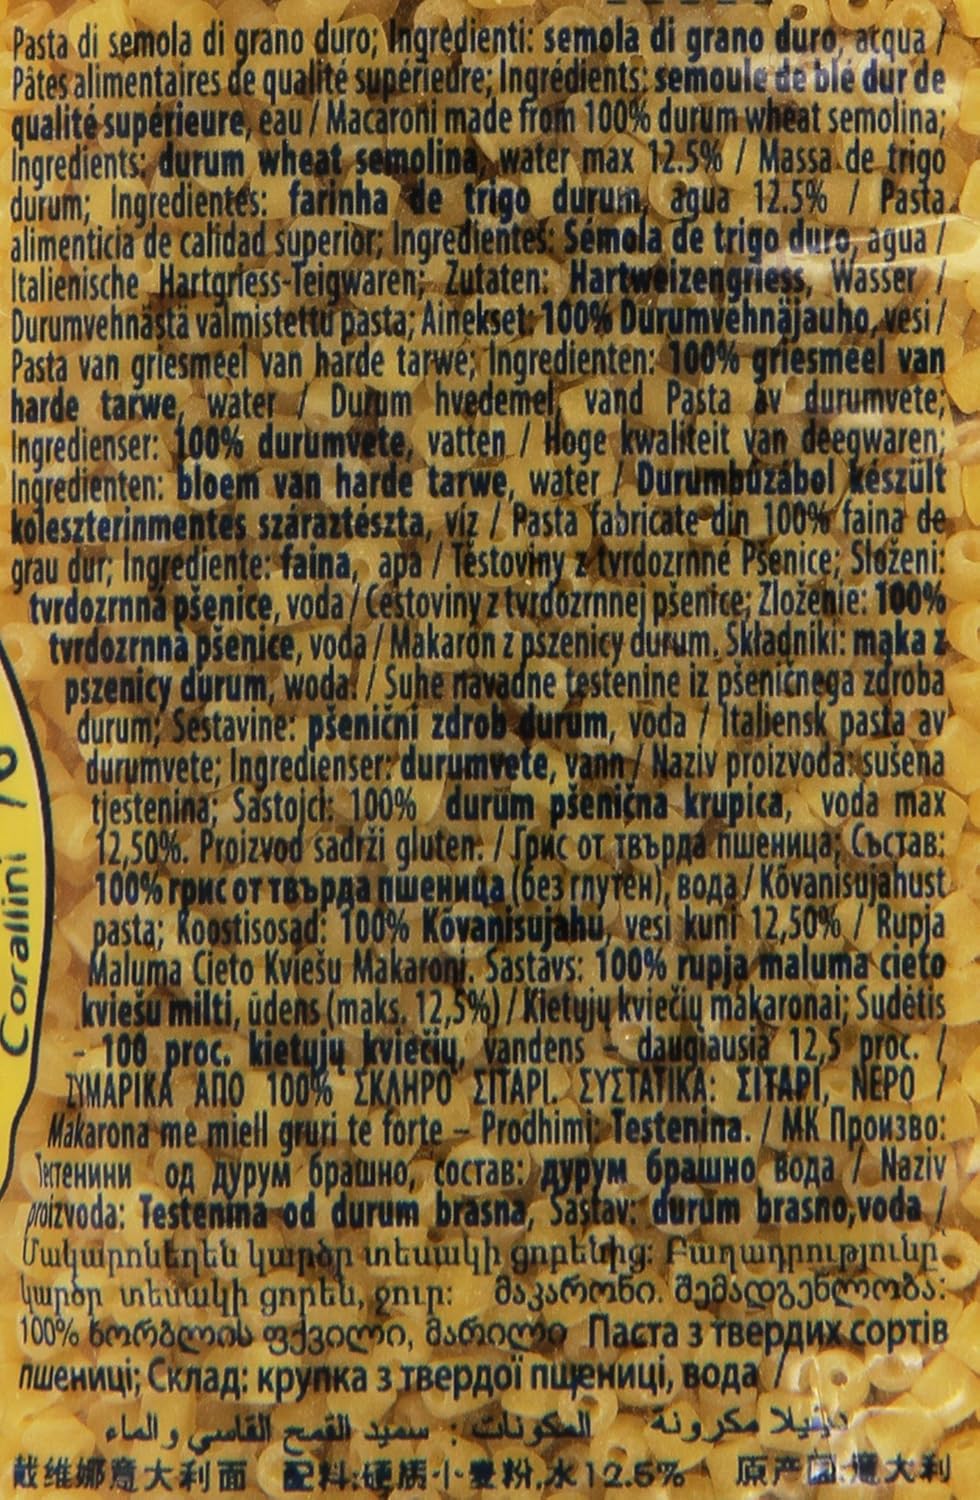 Pasta di semola di grano duro; Ingredienti: semola di grano duro, acqua /
Pâtes alimentaires de qualité supérieure; Ingrédients: semoule de blé dur de
qualité supérieure, eau / Macaroni made from 100% durum wheat semolina;
Ingredients: durum wheat semolina, water max 12.5% / Massa de trigo
durum; Ingredientes: farinha de trigo durum, agua 12.5% / Pasta
alimenticia de calidad superior; Ingredientes: Sémola de trigo duro, agua /
Italienische Hartgriess-Teigwaren; Zutaten: Hartweizengriess, Wasser /
Durumvehnästä valmistettu pasta; Ainekset: 100% Durumvehnäjauho, vesi /
Pasta van griesmeel van harde tarwe; Ingredienten: 100% griesmeel van
harde tarwe, water / Durum hvedemel, vand Pasta av durumvete;
Ingredienser: 100% durumvete, vatten / Hoge kwaliteit van deegwaren;
Ingredienten: bloem van harde tarwe, water / Durumbúzából készült
koleszterinmentes száraztészta, víz / Pasta fabricate din 100% faina de
grau dur; Ingrediente: faina, apa / Těstoviny z tvrdozrnné Pšenice; Složení:
tvrdozrnná pšenice, voda / Cestoviny z tvrdozrnnej pšenice; Zloženie: 100%
tvrdozrnná pšenice, voda / Makaron z pszenicy durum. Składniki: mąka z
pszenicy durum, woda. / Suhe navadne testenine iz pšeničnega zdroba
durum; Sestavine: pšenični zdrob durum, voda / Italiensk pasta av
durumvete; Ingredienser: durumvete, vann / Naziv proizvoda: sušena
tjestenina; Sastojci: 100% durum pšenična krupica, voda max
12,50%. Proizvod sadrži gluten. / Грис от твърда пшеница; Състав:
100% грис от твърда пшеница (без глутен), вода / Kõvanisujahust
pasta; Koostisosad: 100% Kõvanisujahu, vesi kuni 12,50% / Rupja
Maluma Cieto Kviešu Makaroni. Sastāvs: 100% rupja maluma cieto
kviešu milti, ūdens (maks. 12,5%) / Kietųjų kviečių makaronai; Sudėtis
- 100 proc. kietųjų kviečių, vandens - daugiausia 12,5 proc. /
ΖΥΜΑΡΙΚΑ ΑΠΟ 100% ΣΚΛΗΡΟ ΣΙΤΑΡΙ. ΣΥΣΤΑΤΙΚΑ: ΣΙΤΑΡΙ, ΝΕΡΟ /
Makarona me miell gruri te forte – Prodhimi: Testenina. / МК Произво:
Тестенини од дурум брашно, состав: дурум брашно вода / Naziv
proizvoda: Testenina od durum brasna, Sastav: durum brasno,voda /
Մակարոնեղեն կարծր տեսակի ցորենից: Բաղադրությունը
կարծր տեսակի ցորեն, ջուր: მაკარონი. შემადგენლობა:
100% ხორბლის ფქვილი, მარილი Паста з твердих сортів
пшениці; Склад: крупка з твердої пшениці, вода /
ديفيلا مكرونة المكونات : سميد القمح القاسي و الماء
戴维娜意大利面 配料:硬质小麦粉,水12.5% 原产国:意大利
Corallini 70